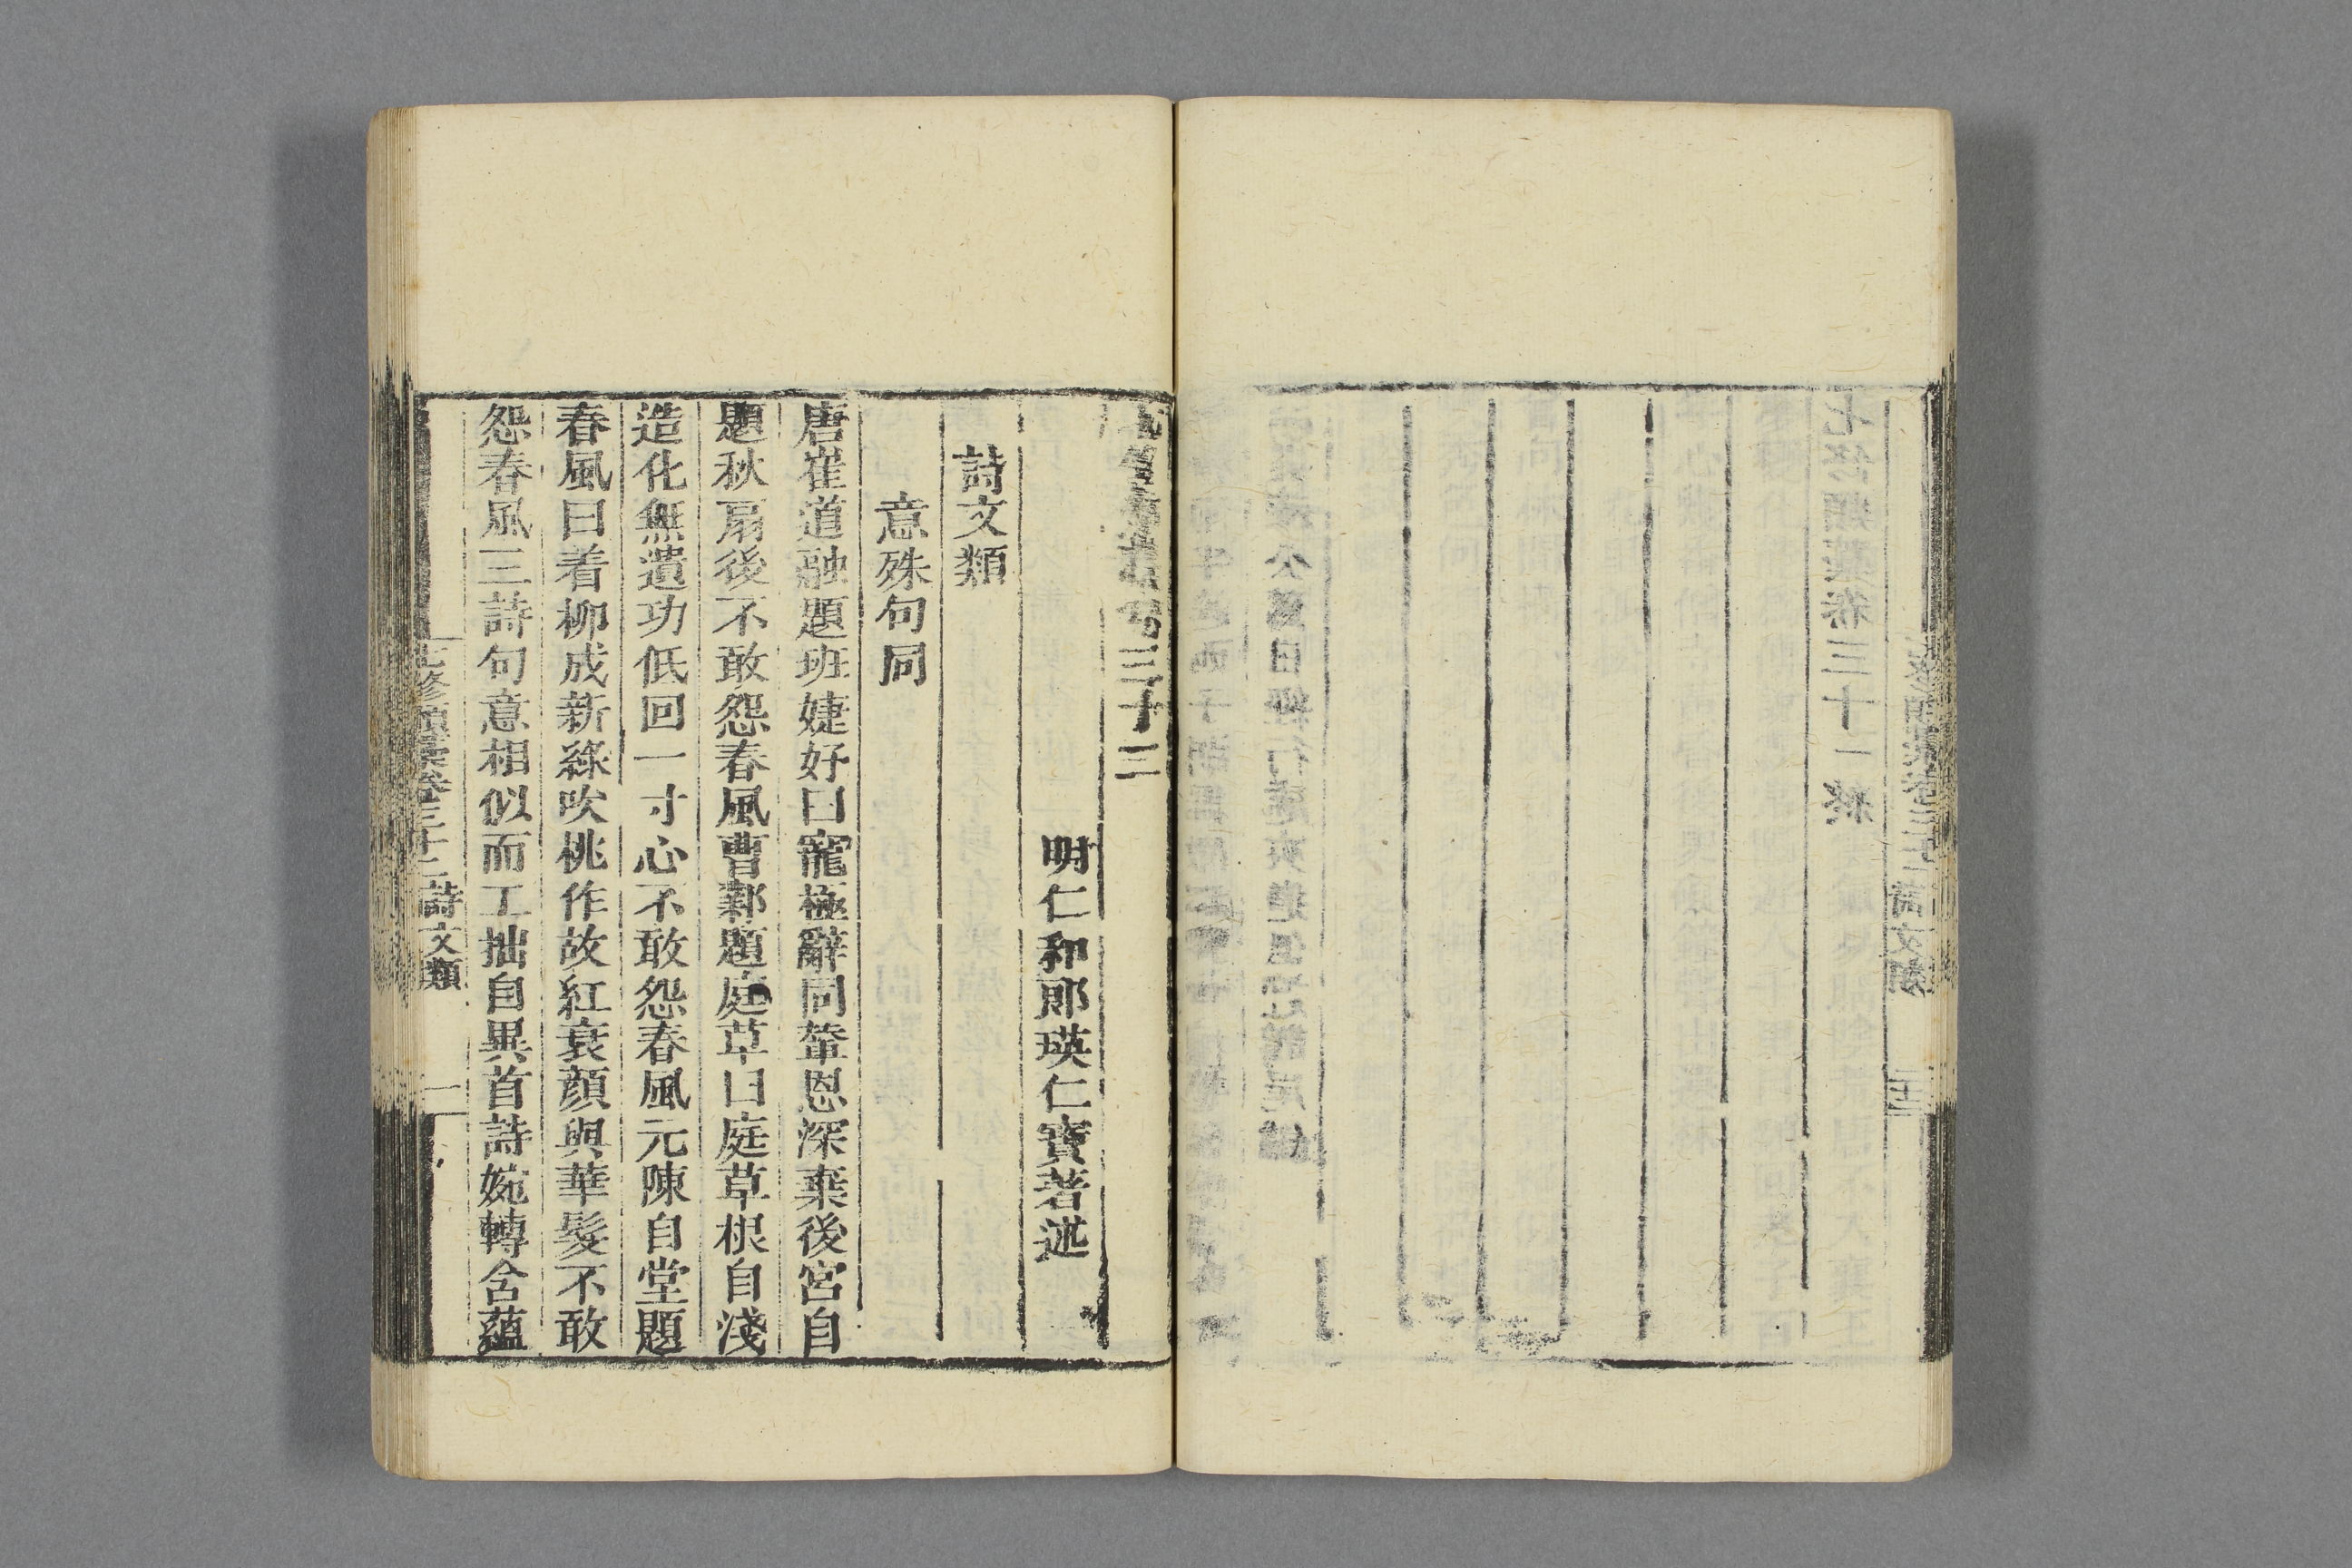 七修類藁卷三十一終
七修類藁卷三十二
明仁和郎瑛仁寶著述
詩文類
意殊句同
唐崔道融題班婕妤曰寵極辭同輦恩深棄後宮自
題秋扇後不敢怨春風曹鄴題庭草曰庭草根自淺
造化無遺功低回一寸心不敢怨春風元陳自堂題
春風曰着柳成新綠吹桃作故紅衰顏與華髮不敢
怨春風三詩句意相似而工拙自異首詩婉轉含蘊
七修類藁卷三十二 詩文類 一